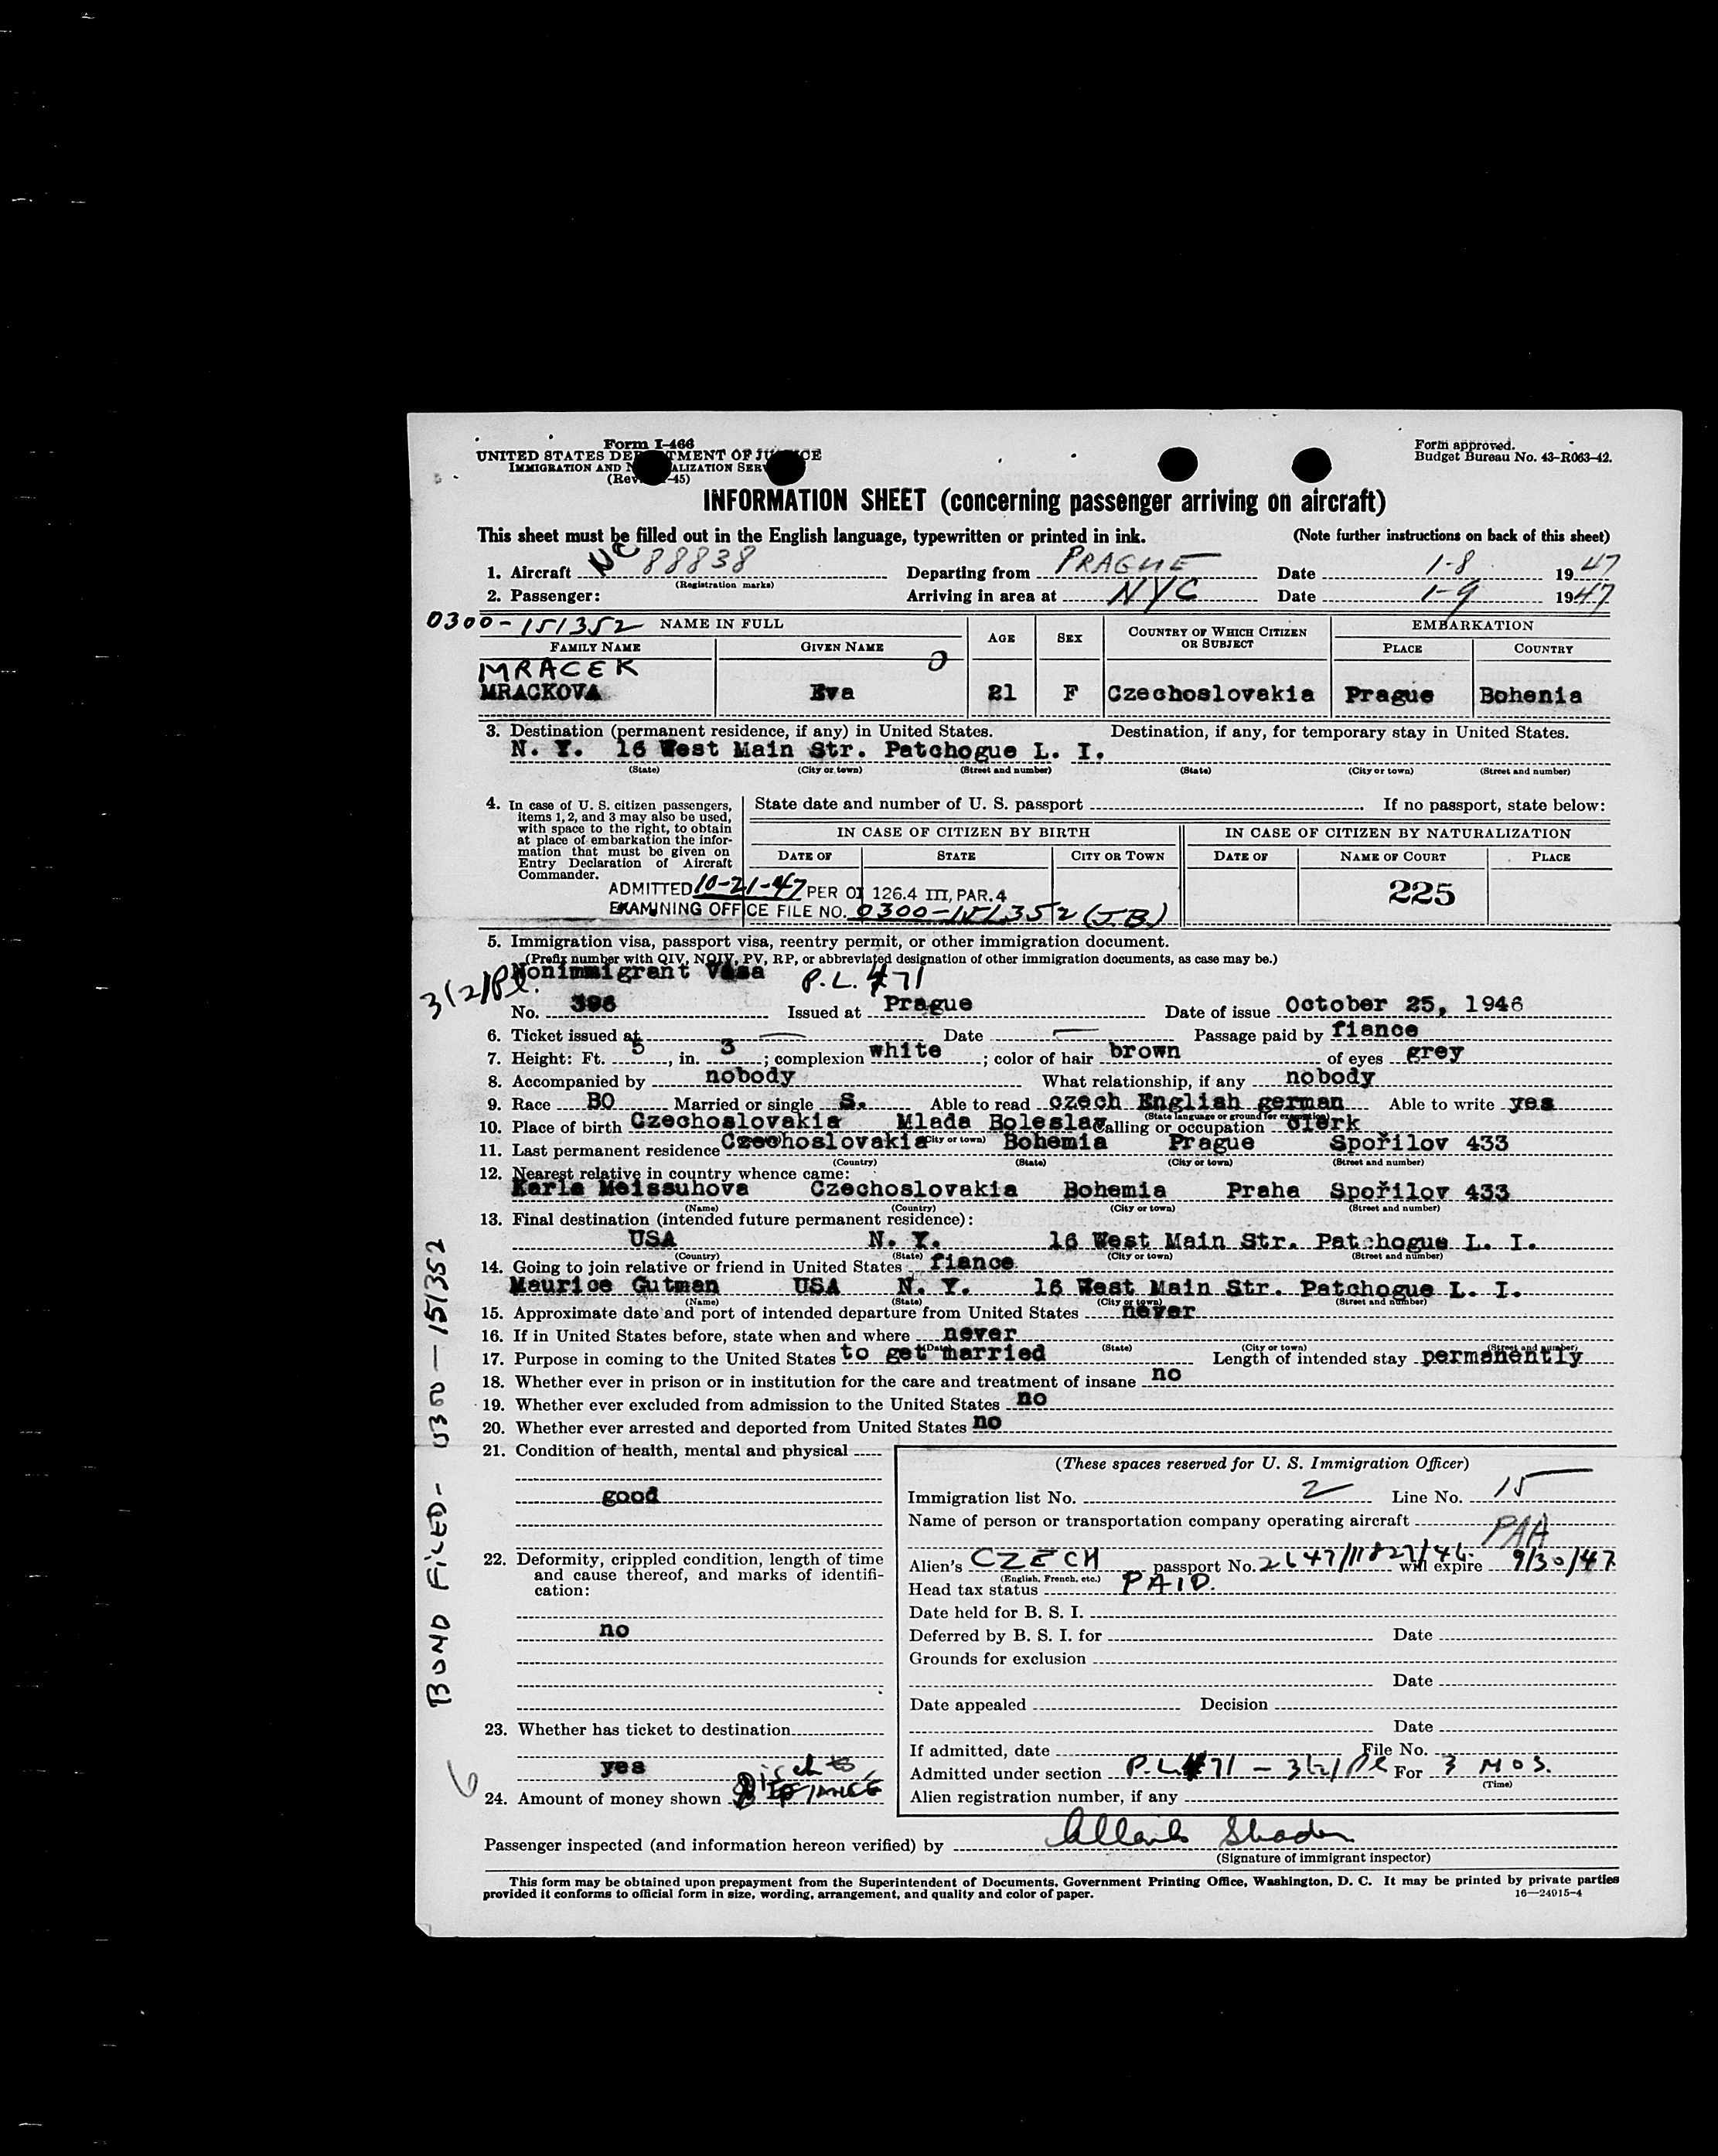 Form I-466
UNITED STATES DEPARTMENT OF JUSTICE
IMMIGRATION AND NATURALIZATION SERVICE
Form approved.
Budget Bureau No. 43-R063-42.
INFORMATION SHEET (concerning passenger arriving on aircraft)
This sheet must be filled out in the English language, typewritten or printed in ink. (Note further instructions on back of this sheet)
1. Aircraft NC 88838 Departing from PRAGUE Date 1-8 1947
(Registration marks)
2. Passenger: Arriving in area at NYC Date 1-9 1947
0300-151352 NAME IN FULL AGE SEX COUNTRY OF WHICH CITIZEN OR SUBJECT EMBARKATION
FAMILY NAME GIVEN NAME PLACE COUNTRY
MRACEK
MRACKOVA Eva 21 F Czechoslovakia Prague Bohenia
3. Destination (permanent residence, if any) in United States. Destination, if any, for temporary stay in United States.
N. Y. 16 West Main Str. Patchogue L. I.
(State) (City or town) (Street and number) (State) (City or town) (Street and number)
4. In case of U. S. citizen passengers, items 1, 2, and 3 may also be used, with space to the right, to obtain at place of embarkation the information that must be given on Entry Declaration of Aircraft Commander.
State date and number of U. S. passport If no passport, state below:
IN CASE OF CITIZEN BY BIRTH IN CASE OF CITIZEN BY NATURALIZATION
DATE OF STATE CITY OR TOWN DATE OF NAME OF COURT PLACE
225
ADMITTED 10-21-47 PER OI 126.4 III, PAR. 4
EXAMINING OFFICE FILE NO. 0300-151352 (J.B.)
5. Immigration visa, passport visa, reentry permit, or other immigration document.
(Prefix number with QIV, NQIV, PV, RP, or abbreviated designation of other immigration documents, as case may be.)
Nonimmigrant Visa P.L. 471
3(2)/Pl.
No. 396 Issued at Prague Date of issue October 25, 1946
6. Ticket issued at Date Passage paid by fiance
7. Height: Ft. 5, in. 3; complexion white; color of hair brown of eyes grey
8. Accompanied by nobody What relationship, if any nobody
9. Race BO Married or single S. Able to read czech English german Able to write yes
(State language or ground for exemption)
10. Place of birth Czechoslovakia Mlada Boleslav Calling or occupation clerk
(City or town)
11. Last permanent residence Czechoslovakia Bohemia Prague Spořilov 433
(Country) (State) (City or town) (Street and number)
12. Nearest relative in country whence came:
Karla Meissuhova Czechoslovakia Bohemia Praha Spořilov 433
(Name) (Country) (City or town) (Street and number)
13. Final destination (intended future permanent residence):
USA N. Y. 16 West Main Str. Patchogue L. I.
(Country) (State) (City or town) (Street and number)
14. Going to join relative or friend in United States fiance
Maurice Gutman USA N. Y. 16 West Main Str. Patchogue L. I.
(Name) (State) (City or town) (Street and number)
15. Approximate date and port of intended departure from United States never
16. If in United States before, state when and where never
(Date) (State) (City or town) (Street and number)
17. Purpose in coming to the United States to get married Length of intended stay permanently
18. Whether ever in prison or in institution for the care and treatment of insane no
19. Whether ever excluded from admission to the United States no
20. Whether ever arrested and deported from United States no
21. Condition of health, mental and physical
good
22. Deformity, crippled condition, length of time and cause thereof, and marks of identification:
no
23. Whether has ticket to destination
yes
24. Amount of money shown FIANCE
(These spaces reserved for U. S. Immigration Officer)
Immigration list No. 2 Line No. 15
Name of person or transportation company operating aircraft
PAA
Alien's CZECH passport No. 2647/11827/46 will expire 9/30/47
(English, French, etc.)
Head tax status PAID.
Date held for B. S. I.
Deferred by B. S. I. for Date
Grounds for exclusion
Date
Date appealed Decision
Date
If admitted, date File No.
Admitted under section P.L. 471 - 3(2)/Pl For 3 MOS.
(Time)
Alien registration number, if any
Passenger inspected (and information hereon verified) by
(Signature of immigrant inspector)
This form may be obtained upon prepayment from the Superintendent of Documents, Government Printing Office, Washington, D. C. It may be printed by private parties
provided it conforms to official form in size, wording, arrangement, and quality and color of paper. 16—24915-4
BOND FILED- 0300-151352
6